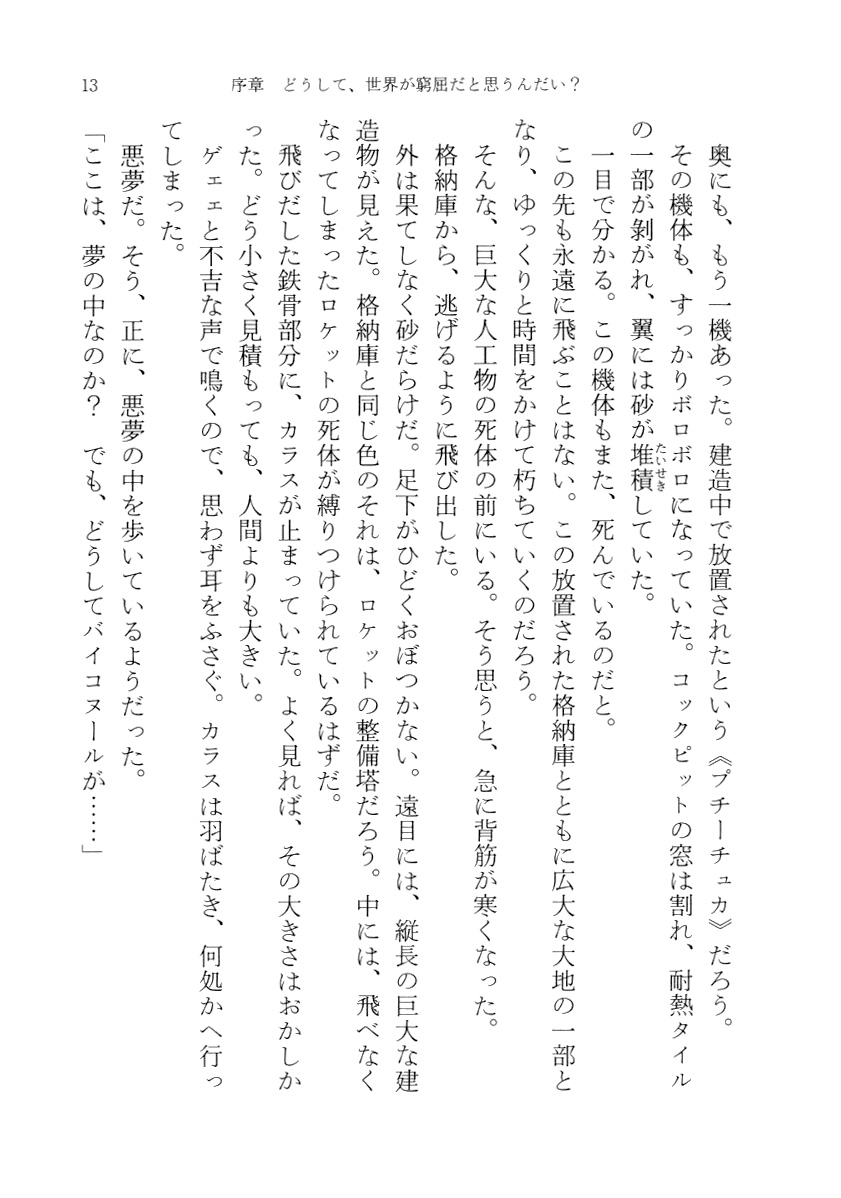 13
序章　どうして、世界が窮屈だと思うんだい？
奥にも、もう一機あった。建造中で放置されたという《プチーチュカ》だろう。
その機体も、すっかりボロボロになっていた。コックピットの窓は割れ、耐熱タイル
の一部が剥がれ、翼には砂が堆積していた。
たいせき
一目で分かる。この機体もまた、死んでいるのだと。
この先も永遠に飛ぶことはない。この放置された格納庫とともに広大な大地の一部と
なり、ゆっくりと時間をかけて朽ちていくのだろう。
そんな、巨大な人工物の死体の前にいる。そう思うと、急に背筋が寒くなった。
格納庫から、逃げるように飛び出した。
外は果てしなく砂だらけだ。足下がひどくおぼつかない。遠目には、縦長の巨大な建
造物が見えた。格納庫と同じ色のそれは、ロケットの整備塔だろう。中には、飛べなく
なってしまったロケットの死体が縛りつけられているはずだ。
飛びだした鉄骨部分に、カラスが止まっていた。よく見れば、その大きさはおかしか
った。どう小さく見積もっても、人間よりも大きい。
ゲェェと不吉な声で鳴くので、思わず耳をふさぐ。カラスは羽ばたき、何処かへ行っ
てしまった。
悪夢だ。そう、正に、悪夢の中を歩いているようだった。
「ここは、夢の中なのか？　でも、どうしてバイコヌールが……」